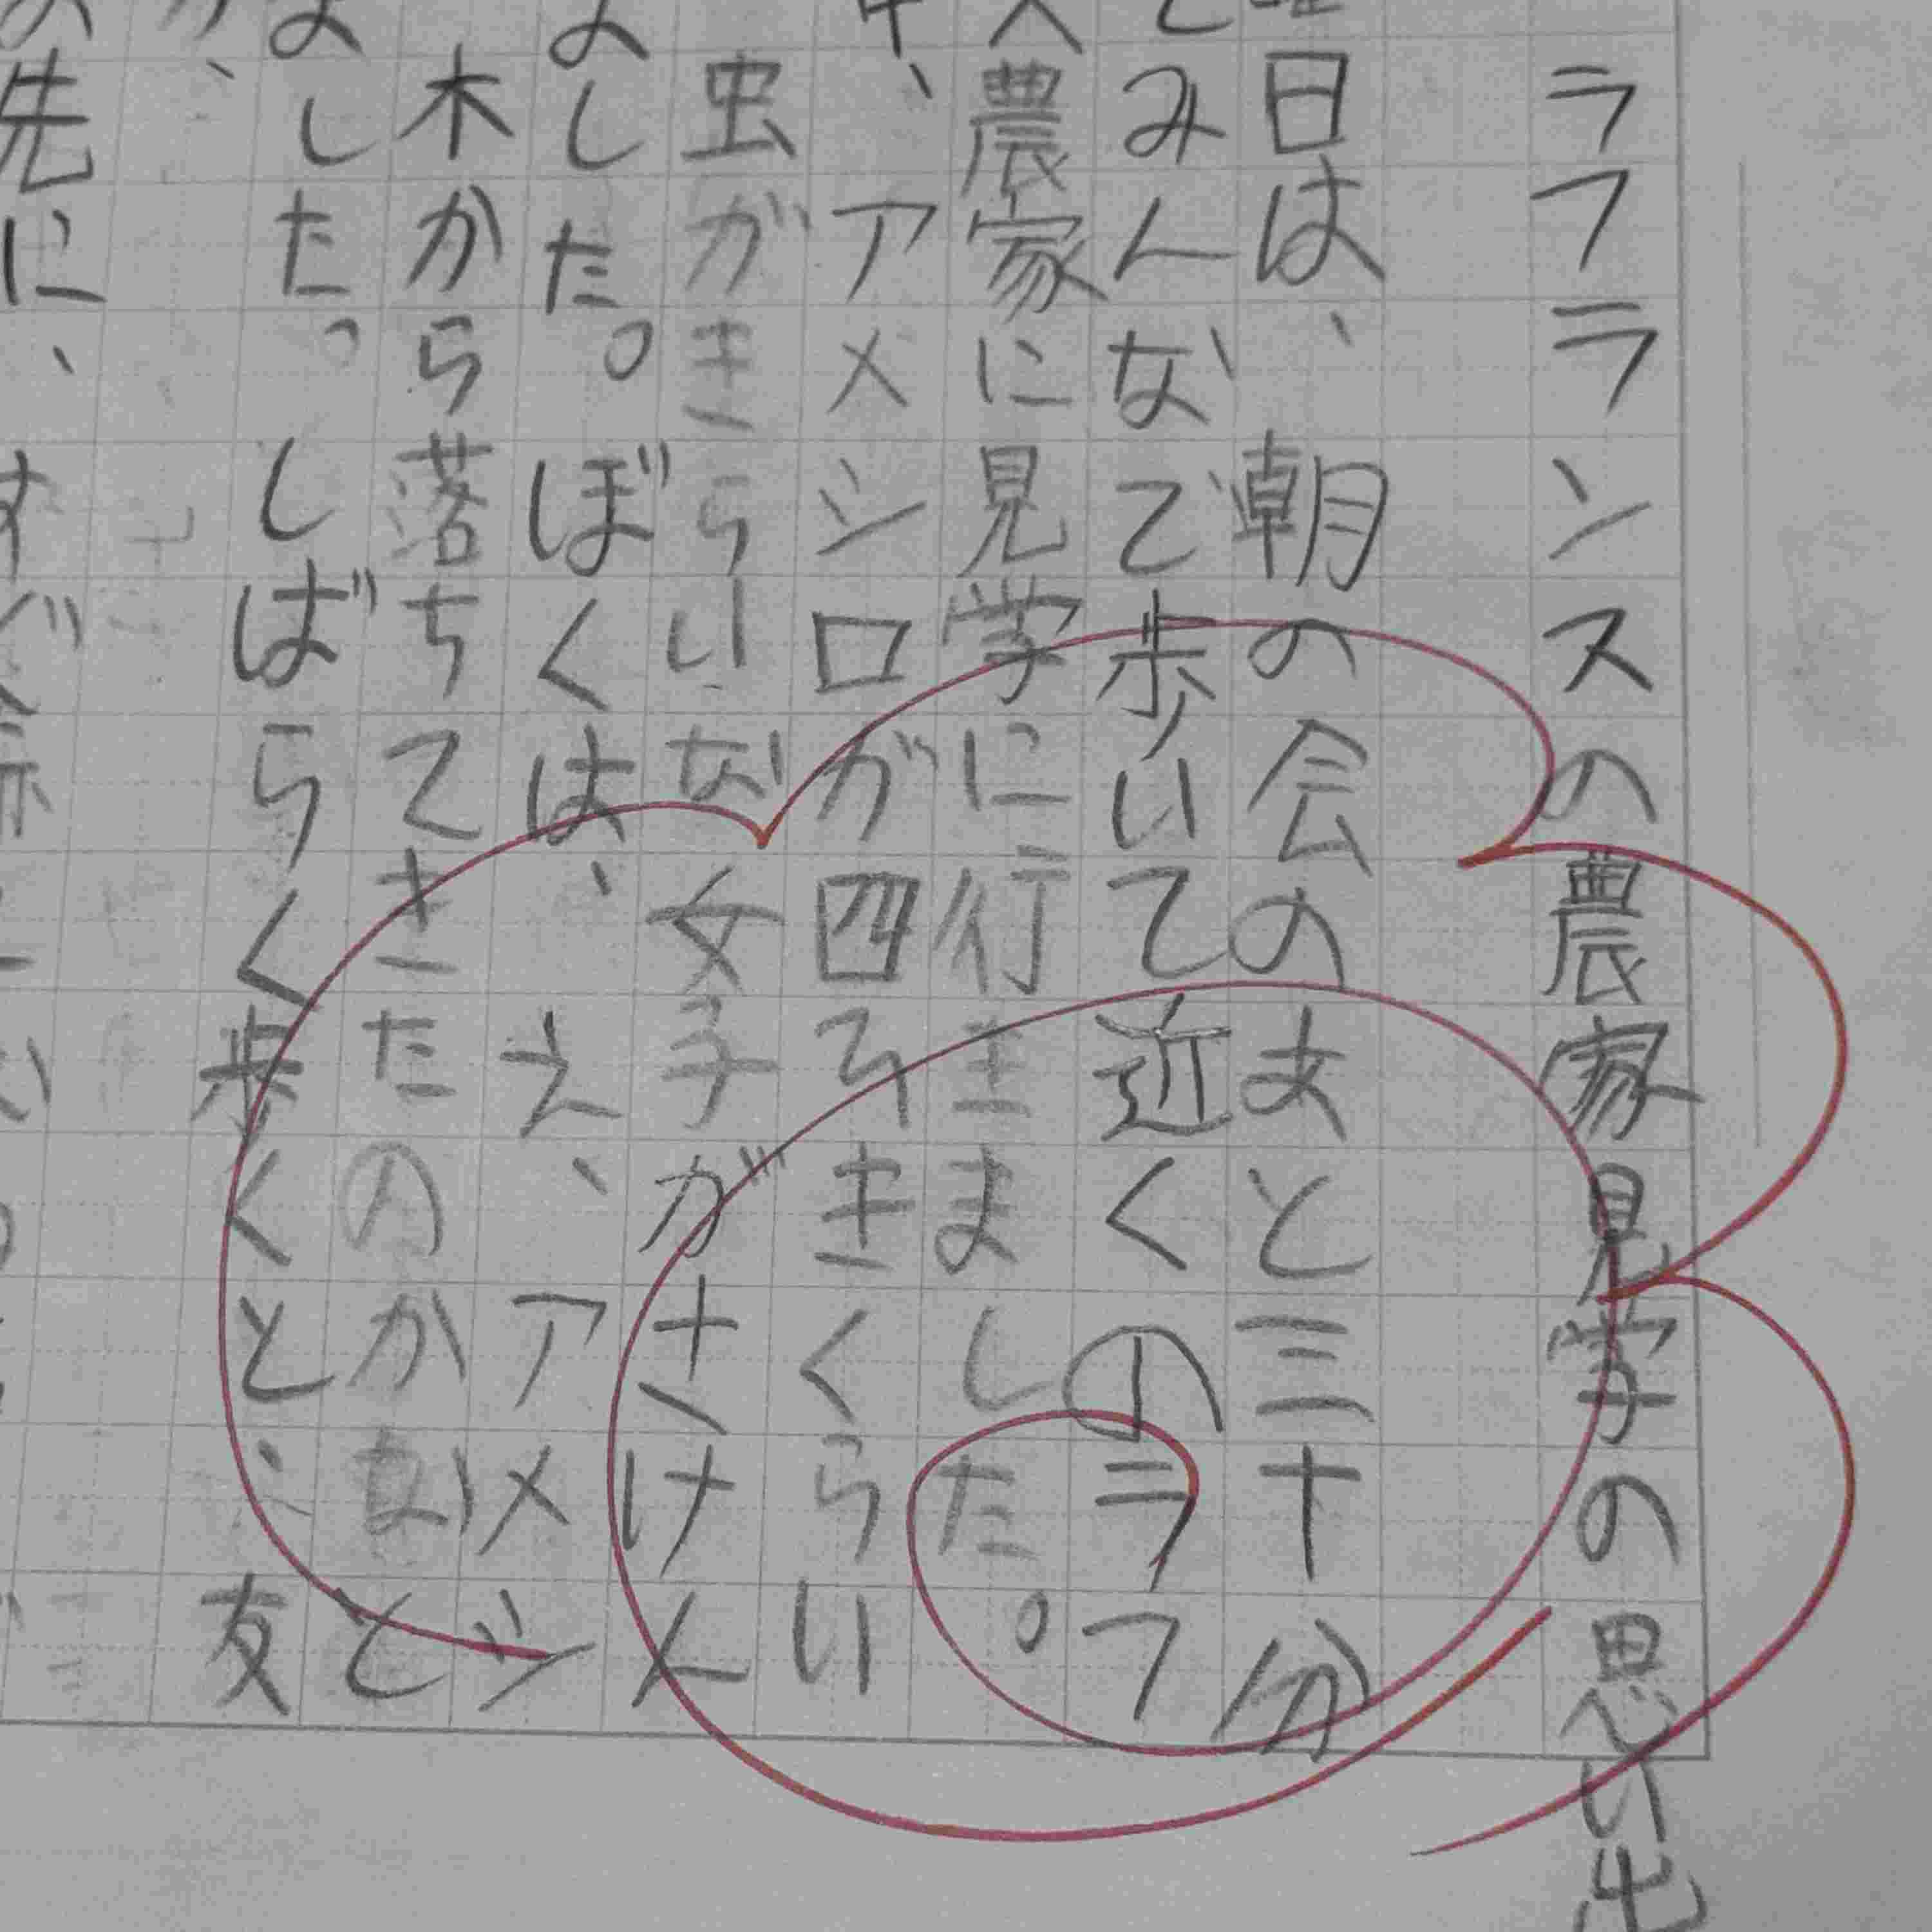 ラフランスの農家見学の思い出
日は、朝の会のあと三十分
みんなで歩いて近くのラフ
農家に見学に行きました。
、アメシロが四ひきくらい
虫がきらいな女子がさけん
ました。ぼくは、え、アメシ
木から落ちてきたのかなと
ました。しばらく歩くと、友
先に、すぐ